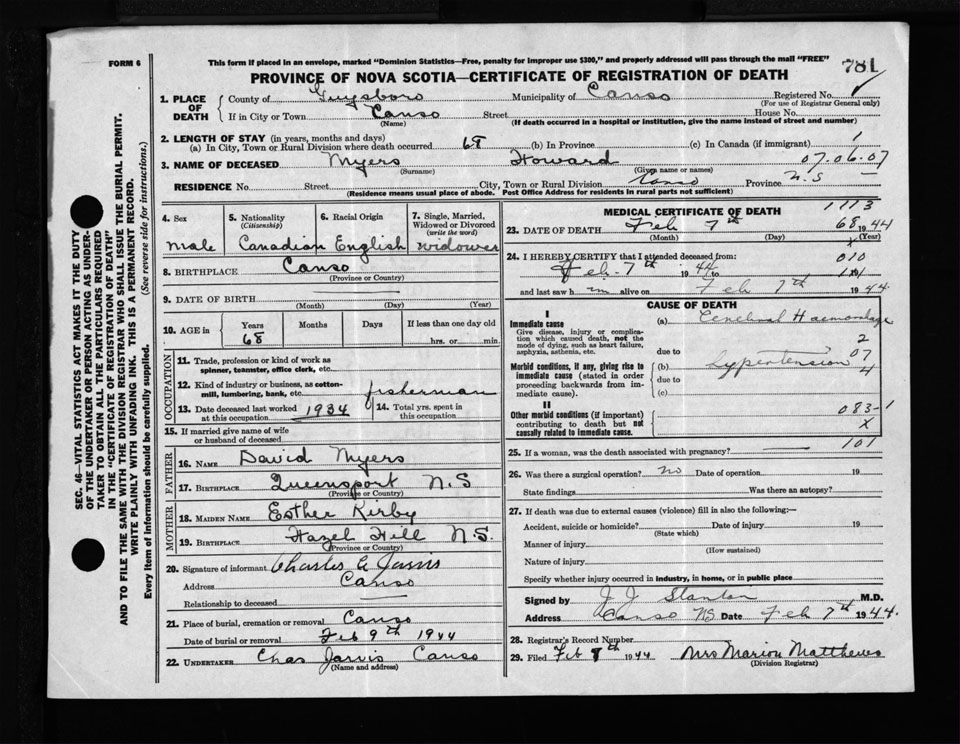 FORM 6
This form if placed in an envelope, marked "Dominion Statistics—Free, penalty for improper use $300," and properly addressed will pass through the mail "FREE"
781
PROVINCE OF NOVA SCOTIA—CERTIFICATE OF REGISTRATION OF DEATH
1. PLACE OF DEATH
County of Guysboro Municipality of Canso Registered No.
(For use of Registrar General only)
If in City or Town Canso Street House No.
(Name) (If death occurred in a hospital or institution, give the name instead of street and number)
2. LENGTH OF STAY (in years, months and days)
(a) In City, Town or Rural Division where death occurred 68 (b) In Province (c) In Canada (if immigrant) 1
3. NAME OF DECEASED Myers Howard 07.06.07
(Surname) (Given name or names)
RESIDENCE No. Street City, Town or Rural Division Canso Province N.S
(Residence means usual place of abode. Post Office Address for residents in rural parts not sufficient)
4. Sex
male
5. Nationality
(Citizenship)
Canadian
6. Racial Origin
English
7. Single, Married, Widowed or Divorced
(write the word)
widower
8. BIRTHPLACE Canso
(Province or Country)
9. DATE OF BIRTH
(Month) (Day) (Year)
10. AGE in Years Months Days If less than one day old
68 hrs. or min.
OCCUPATION
11. Trade, profession or kind of work as
spinner, teamster, office clerk, etc.
12. Kind of industry or business, as cotton-
mill, lumbering, bank, etc. fisherman
13. Date deceased last worked at this occupation 1934
14. Total yrs. spent in this occupation
15. If married give name of wife
or husband of deceased
FATHER
16. NAME David Myers
17. BIRTHPLACE Queensport N.S
(Province or Country)
MOTHER
18. MAIDEN NAME Esther Kirby
19. BIRTHPLACE Hazel Hill N.S.
(Province or Country)
20. Signature of informant Charles G Jarvis
Address Canso
Relationship to deceased
21. Place of burial, cremation or removal Canso
Date of burial or removal Feb 9th 1944
22. UNDERTAKER Chas Jarvis Canso
(Name and address)
MEDICAL CERTIFICATE OF DEATH
1113
23. DATE OF DEATH Feb 7th 68 1944
(Month) (Day) (Year)
x
24. I HEREBY CERTIFY that I attended deceased from: 010
Feb. 7th 1944 to
and last saw him alive on Feb 7th 1944.
CAUSE OF DEATH
I
Immediate cause
Give disease, injury or complication which caused death, not the mode of dying, such as heart failure, asphyxia, asthenia, etc.
(a) Cerebral Haemorrhage
2
due to
07
Morbid conditions, if any, giving rise to immediate cause (stated in order proceeding backwards from immediate cause).
(b) Hypertension
4
due to
(c)
II
Other morbid conditions (if important) contributing to death but not causally related to immediate cause.
083-1
X
101
25. If a woman, was the death associated with pregnancy?
26. Was there a surgical operation? no Date of operation 19
State findings Was there an autopsy?
27. If death was due to external causes (violence) fill in also the following:—
Accident, suicide or homicide? Date of injury 19
(State which)
Manner of injury
(How sustained)
Nature of injury
Specify whether injury occurred in industry, in home, or in public place
Signed by J J Stanton M.D.
Address Canso NS. Date Feb 7th 1944.
28. Registrar's Record Number
29. Filed Feb 8th 1944 Mrs Marion Matthews
(Division Registrar)
SEC. 46—VITAL STATISTICS ACT MAKES IT THE DUTY
OF THE UNDERTAKER OR PERSON ACTING AS UNDER-
TAKER TO OBTAIN ALL THE PARTICULARS REQUIRED
IN THE "CERTIFICATE OF REGISTRATION OF DEATH"
AND TO FILE THE SAME WITH THE DIVISION REGISTRAR WHO SHALL ISSUE THE BURIAL PERMIT.
WRITE PLAINLY WITH UNFADING INK. THIS IS A PERMANENT RECORD.
Every item of information should be carefully supplied. (See reverse side for instructions.)